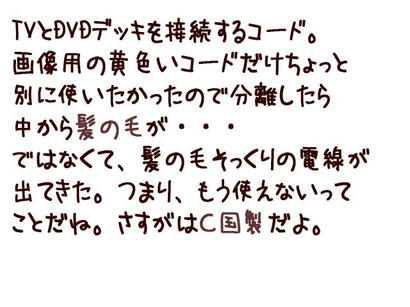 TVとDVDデッキを接続するコード。
画像用の黄色いコードだけちょっと
別に使いたかったので分離したら
中から髪の毛が・・・
ではなくて、髪の毛そっくりの電線が
出てきた。つまり、もう使えないって
ことだね。さすがはC国製だよ。